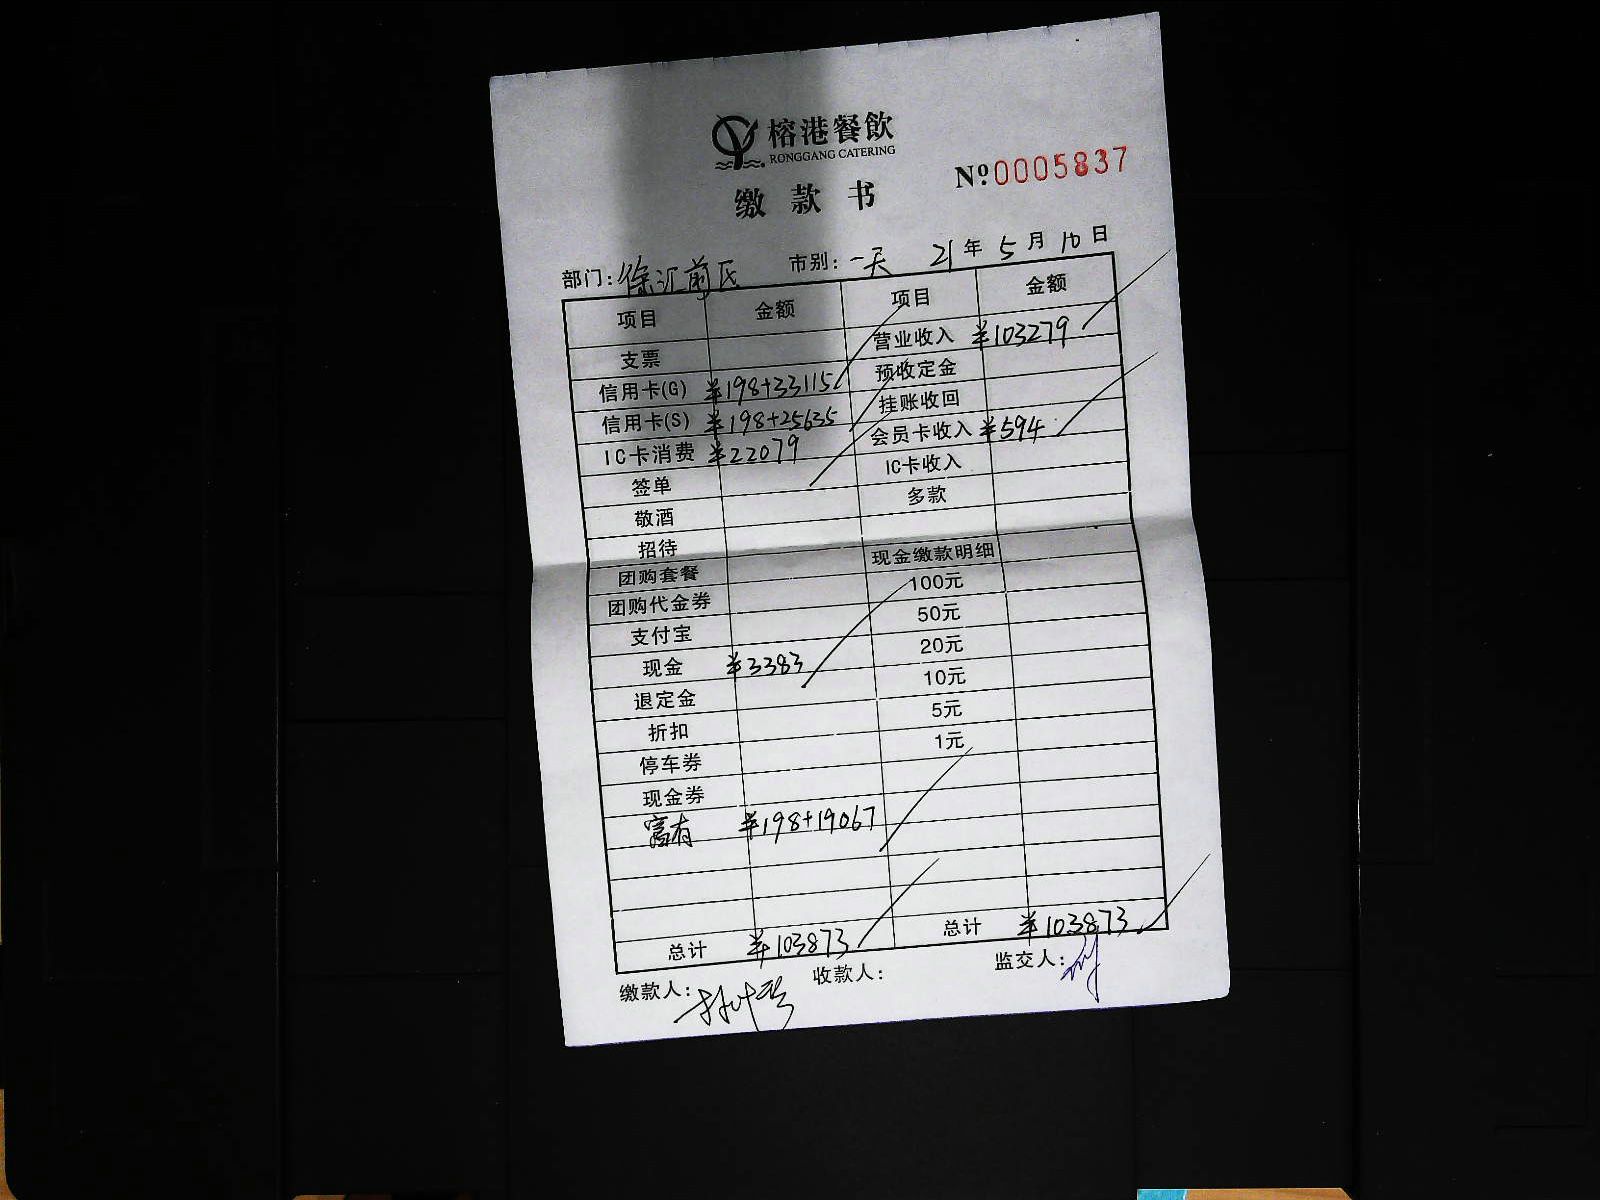 榕港餐飲
RONGGANG CATERING
缴款书
Nº0005837
部门:徐汇前民 市别:一天 21年5月10日
项目 金额 项目 金额
支票 营业收入 ¥103279
信用卡(G) ¥198+33115 预收定金
信用卡(S) ¥198+25635 挂账收回
IC卡消费 ¥22079 会员卡收入 ¥594
签单 IC卡收入
敬酒 多款
招待
团购套餐 现金缴款明细
团购代金券 100元
支付宝 50元
现金 ¥3383 20元
退定金 10元
折扣 5元
停车券 1元
现金券
富有 ¥198+19067
总计 ¥103873 总计 ¥103873
缴款人: 收款人: 监交人: